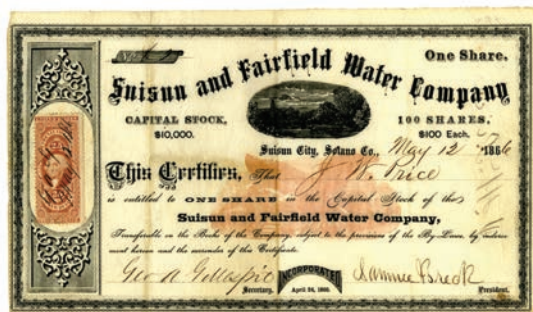 One Share,
Suisun and Fairfield Water Company
CAPITAL STOCK,
$10,000.
100 SHARES,
$100 Each.
Suisun City, Solano Co., May 12 1866
This Certifies, That J. W. Price
is entitled to ONE SHARE in the Capital Stock of the
Suisun and Fairfield Water Company,
Transferable on the Books of the Company, subject to the provisions of the By-Laws, by indorse-
ment hereon and the surrender of this Certificate.
Geo A Gillespie
Secretary.
INCORPORATED
April 24, 1866.
Sammie Breck
President.